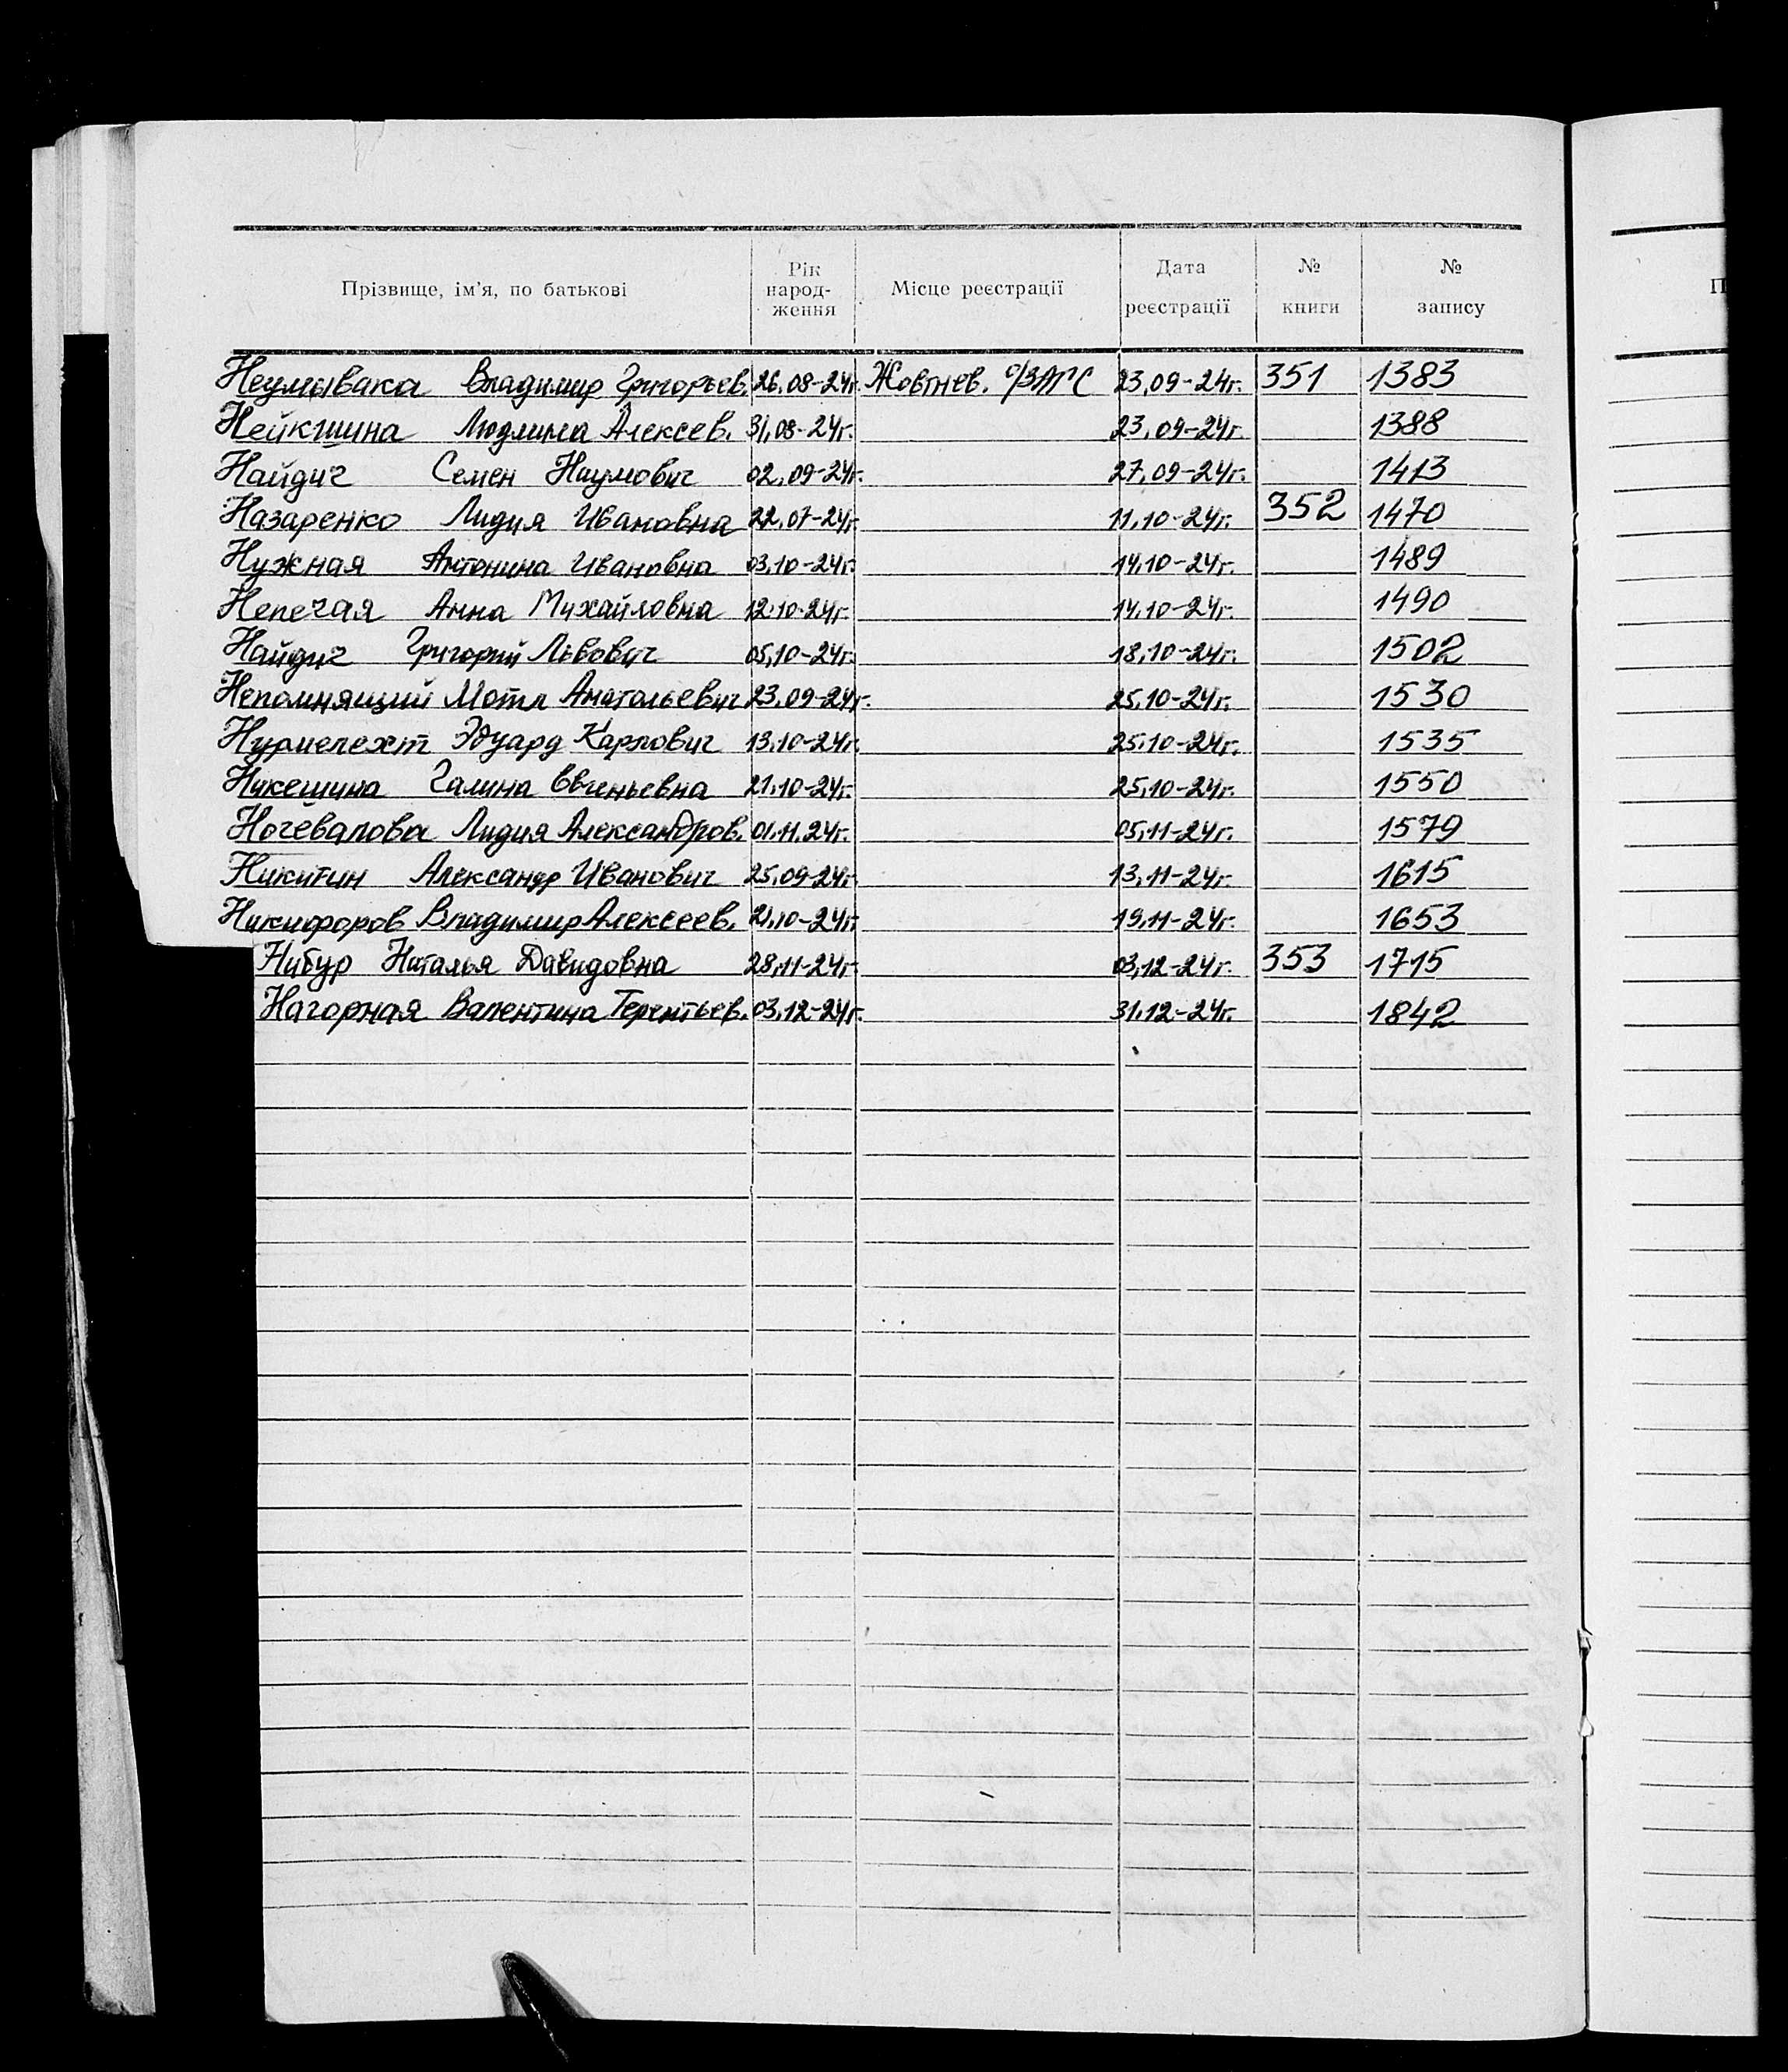 Прізвище, ім'я, по батькові Рік народ- ження Місце реєстрації Дата реєстрації № книги № запису
Неумывака Владимир Григорьев. 26.08-24г. Жовтнев. о/ЗАГС 23.09-24г. 351 1383
Нейкшина Людмила Алексев. 31.08-24г. 23.09-24г. 1388
Найдич Семен Наумович 02.09-24г. 27.09-24г. 1413
Назаренко Лидия Ивановна 22.07-24г. 11.10-24г. 352 1470
Нужная Антонина Ивановна 03.10-24г. 14.10-24г. 1489
Непечая Анна Михайловна 12.10-24г. 14.10-24г. 1490
Найдич Григорий Львович 05.10-24г. 18.10-24г. 1502
Непомнящий Мотл Анатольевич 23.09-24г. 25.10-24г. 1530
Нурмелехт Эдуард Карлович 13.10-24г. 25.10-24г. 1535
Никешина Галина Евгеньевна 21.10-24г. 25.10-24г. 1550
Ночевалова Лидия Александров. 01.11.24г. 05.11-24г. 1579
Никитин Александр Иванович 25.09-24г. 13.11-24г. 1615
Никифоров Владимир Алексеев. 21.10-24г. 19.11-24г. 1653
Нибур Наталья Давидовна 28.11-24г. 03.12-24г. 353 1715
Нагорная Валентина Терентьев. 03.12-24г. 31.12-24г. 1842
П